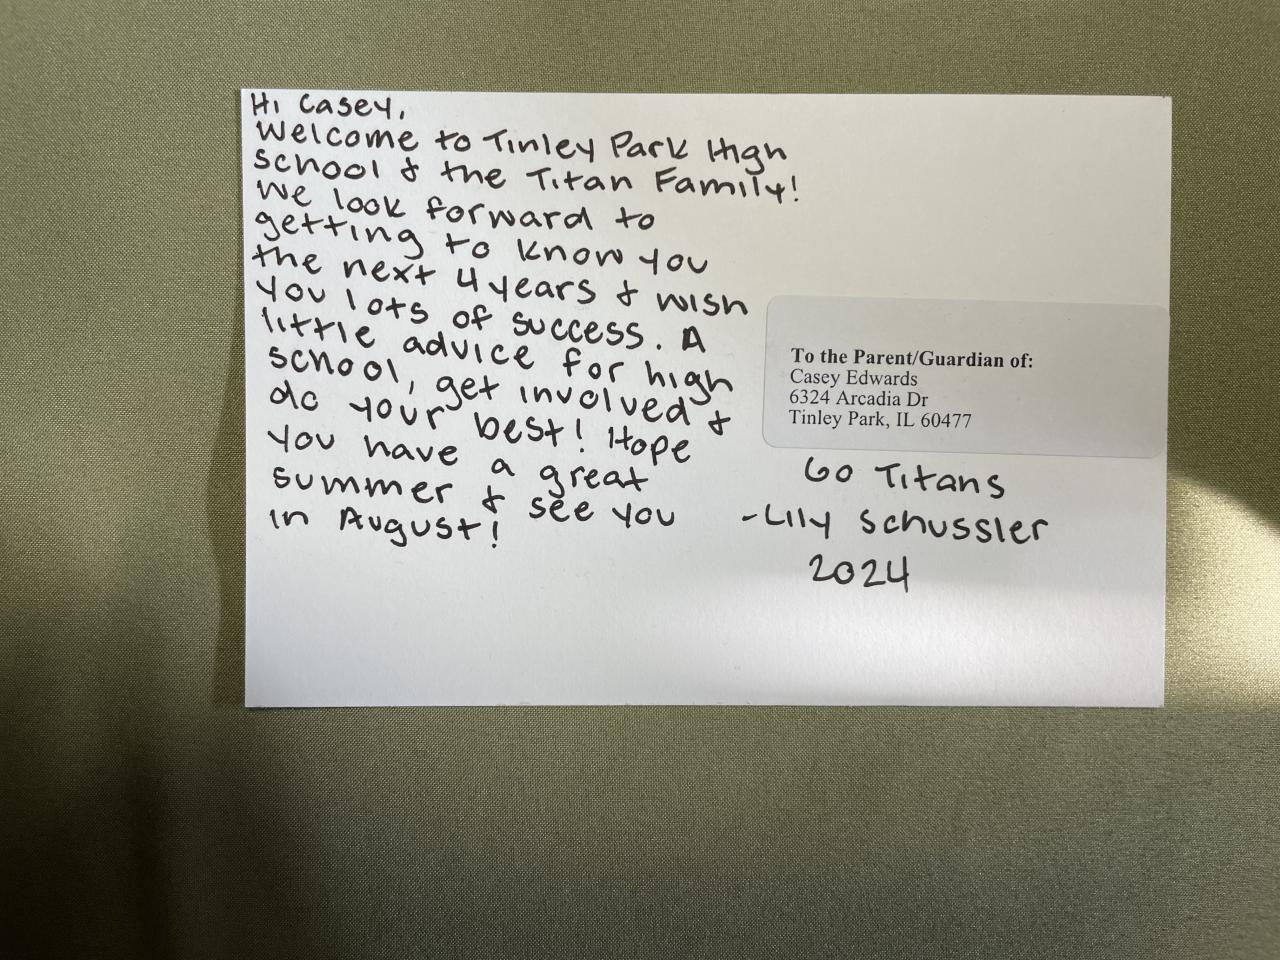 Hi Casey,
Welcome to Tinley Park High
school & the Titan Family!
We look forward to
getting to know you
the next 4 years & wish
you lots of success. A
little advice for high
school, get involved &
do your best! Hope
you have a great
summer & see you
in August!
To the Parent/Guardian of:
Casey Edwards
6324 Arcadia Dr
Tinley Park, IL 60477
Go Titans
-Lily Schussler
2024